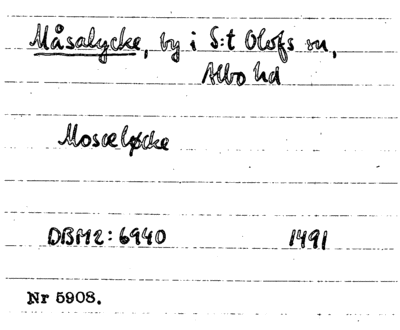 Måsalycke, by i S:t Olofs sn,
Albo hd
Mosceløcke
DBM2:6940 1491
Nr 5908.